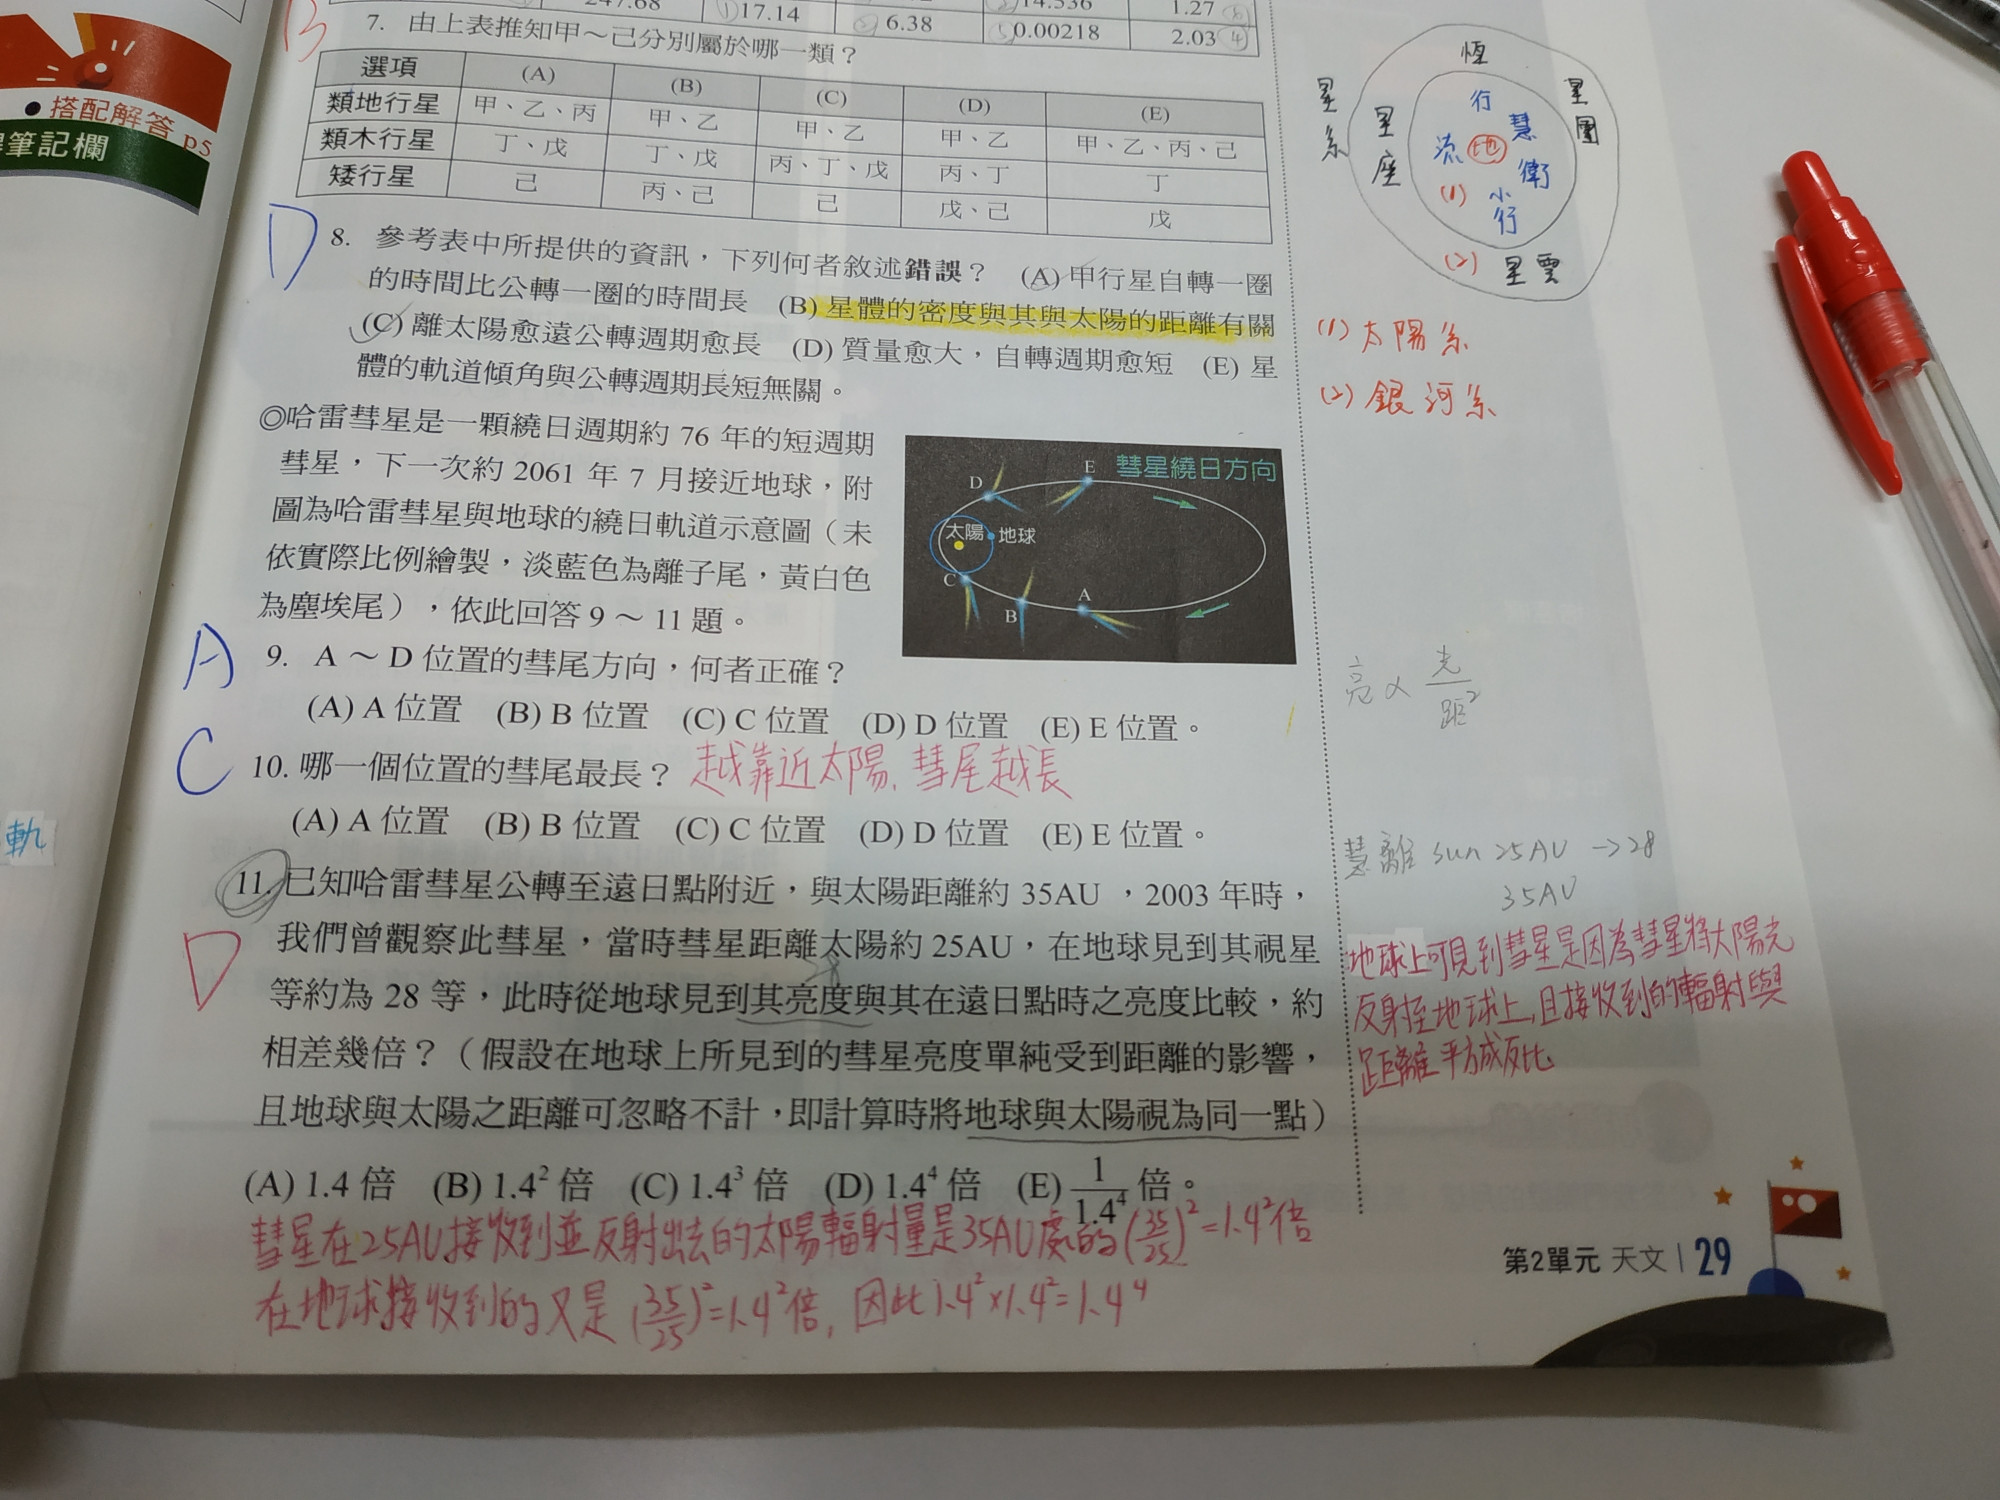 247.68
①17.14
6.38
14.536
0.00218
1.27
2.03 ④
B
7. 由上表推知甲～己分別屬於哪一類？
選項 (A) (B) (C) (D) (E)
類地行星 甲、乙、丙 甲、乙 甲、乙 甲、乙 甲、乙、丙、己
類木行星 丁、戊 丁、戊 丙、丁、戊 丙、丁 丁
矮行星 己 丙、己 己 戊、己 戊
D
8. 參考表中所提供的資訊，下列何者敘述錯誤？ (A) 甲行星自轉一圈
的時間比公轉一圈的時間長 (B) 星體的密度與其與太陽的距離有關
(C) 離太陽愈遠公轉週期愈長 (D) 質量愈大，自轉週期愈短 (E) 星
體的軌道傾角與公轉週期長短無關。
◎哈雷彗星是一顆繞日週期約 76 年的短週期
彗星，下一次約 2061 年 7 月接近地球，附
圖為哈雷彗星與地球的繞日軌道示意圖（未
依實際比例繪製，淡藍色為離子尾，黃白色
為塵埃尾），依此回答 9 ～ 11 題。
彗星繞日方向
D
E
太陽
地球
C
B
A
A
9. A ～ D 位置的彗尾方向，何者正確？
(A) A 位置 (B) B 位置 (C) C 位置 (D) D 位置 (E) E 位置。
C
10. 哪一個位置的彗尾最長？ 越靠近太陽，彗尾越長
(A) A 位置 (B) B 位置 (C) C 位置 (D) D 位置 (E) E 位置。
D
11. 已知哈雷彗星公轉至遠日點附近，與太陽距離約 35AU ，2003 年時，
我們曾觀察此彗星，當時彗星距離太陽約 25AU，在地球見到其視星
等約為 28 等，此時從地球見到其亮度與其在遠日點時之亮度比較，約
28
相差幾倍？（假設在地球上所見到的彗星亮度單純受到距離的影響，
且地球與太陽之距離可忽略不計，即計算時將地球與太陽視為同一點）
(A) 1.4 倍 (B) 1.4² 倍 (C) 1.4³ 倍 (D) 1.4⁴ 倍 (E) 1/1.4⁴ 倍。
彗星在25AU接收到並反射出去的太陽輻射量是35AU處的(35/25)²=1.4²倍
在地球接收到的又是(35/25)²=1.4²倍，因此1.4²×1.4²=1.4⁴
恆
星系
星座
星團
行
慧
流
地
衛
(1)
小行
(2) 星雲
(1) 太陽系
(2) 銀河系
亮∝光/距²
慧離 sun 25AU →28
35AU
地球上可見到彗星是因為彗星將太陽光
反射至地球上，且接收到的輻射與
距離平方成反比
第2單元 天文 | 29
● 搭配解答 p5
筆記欄
軌